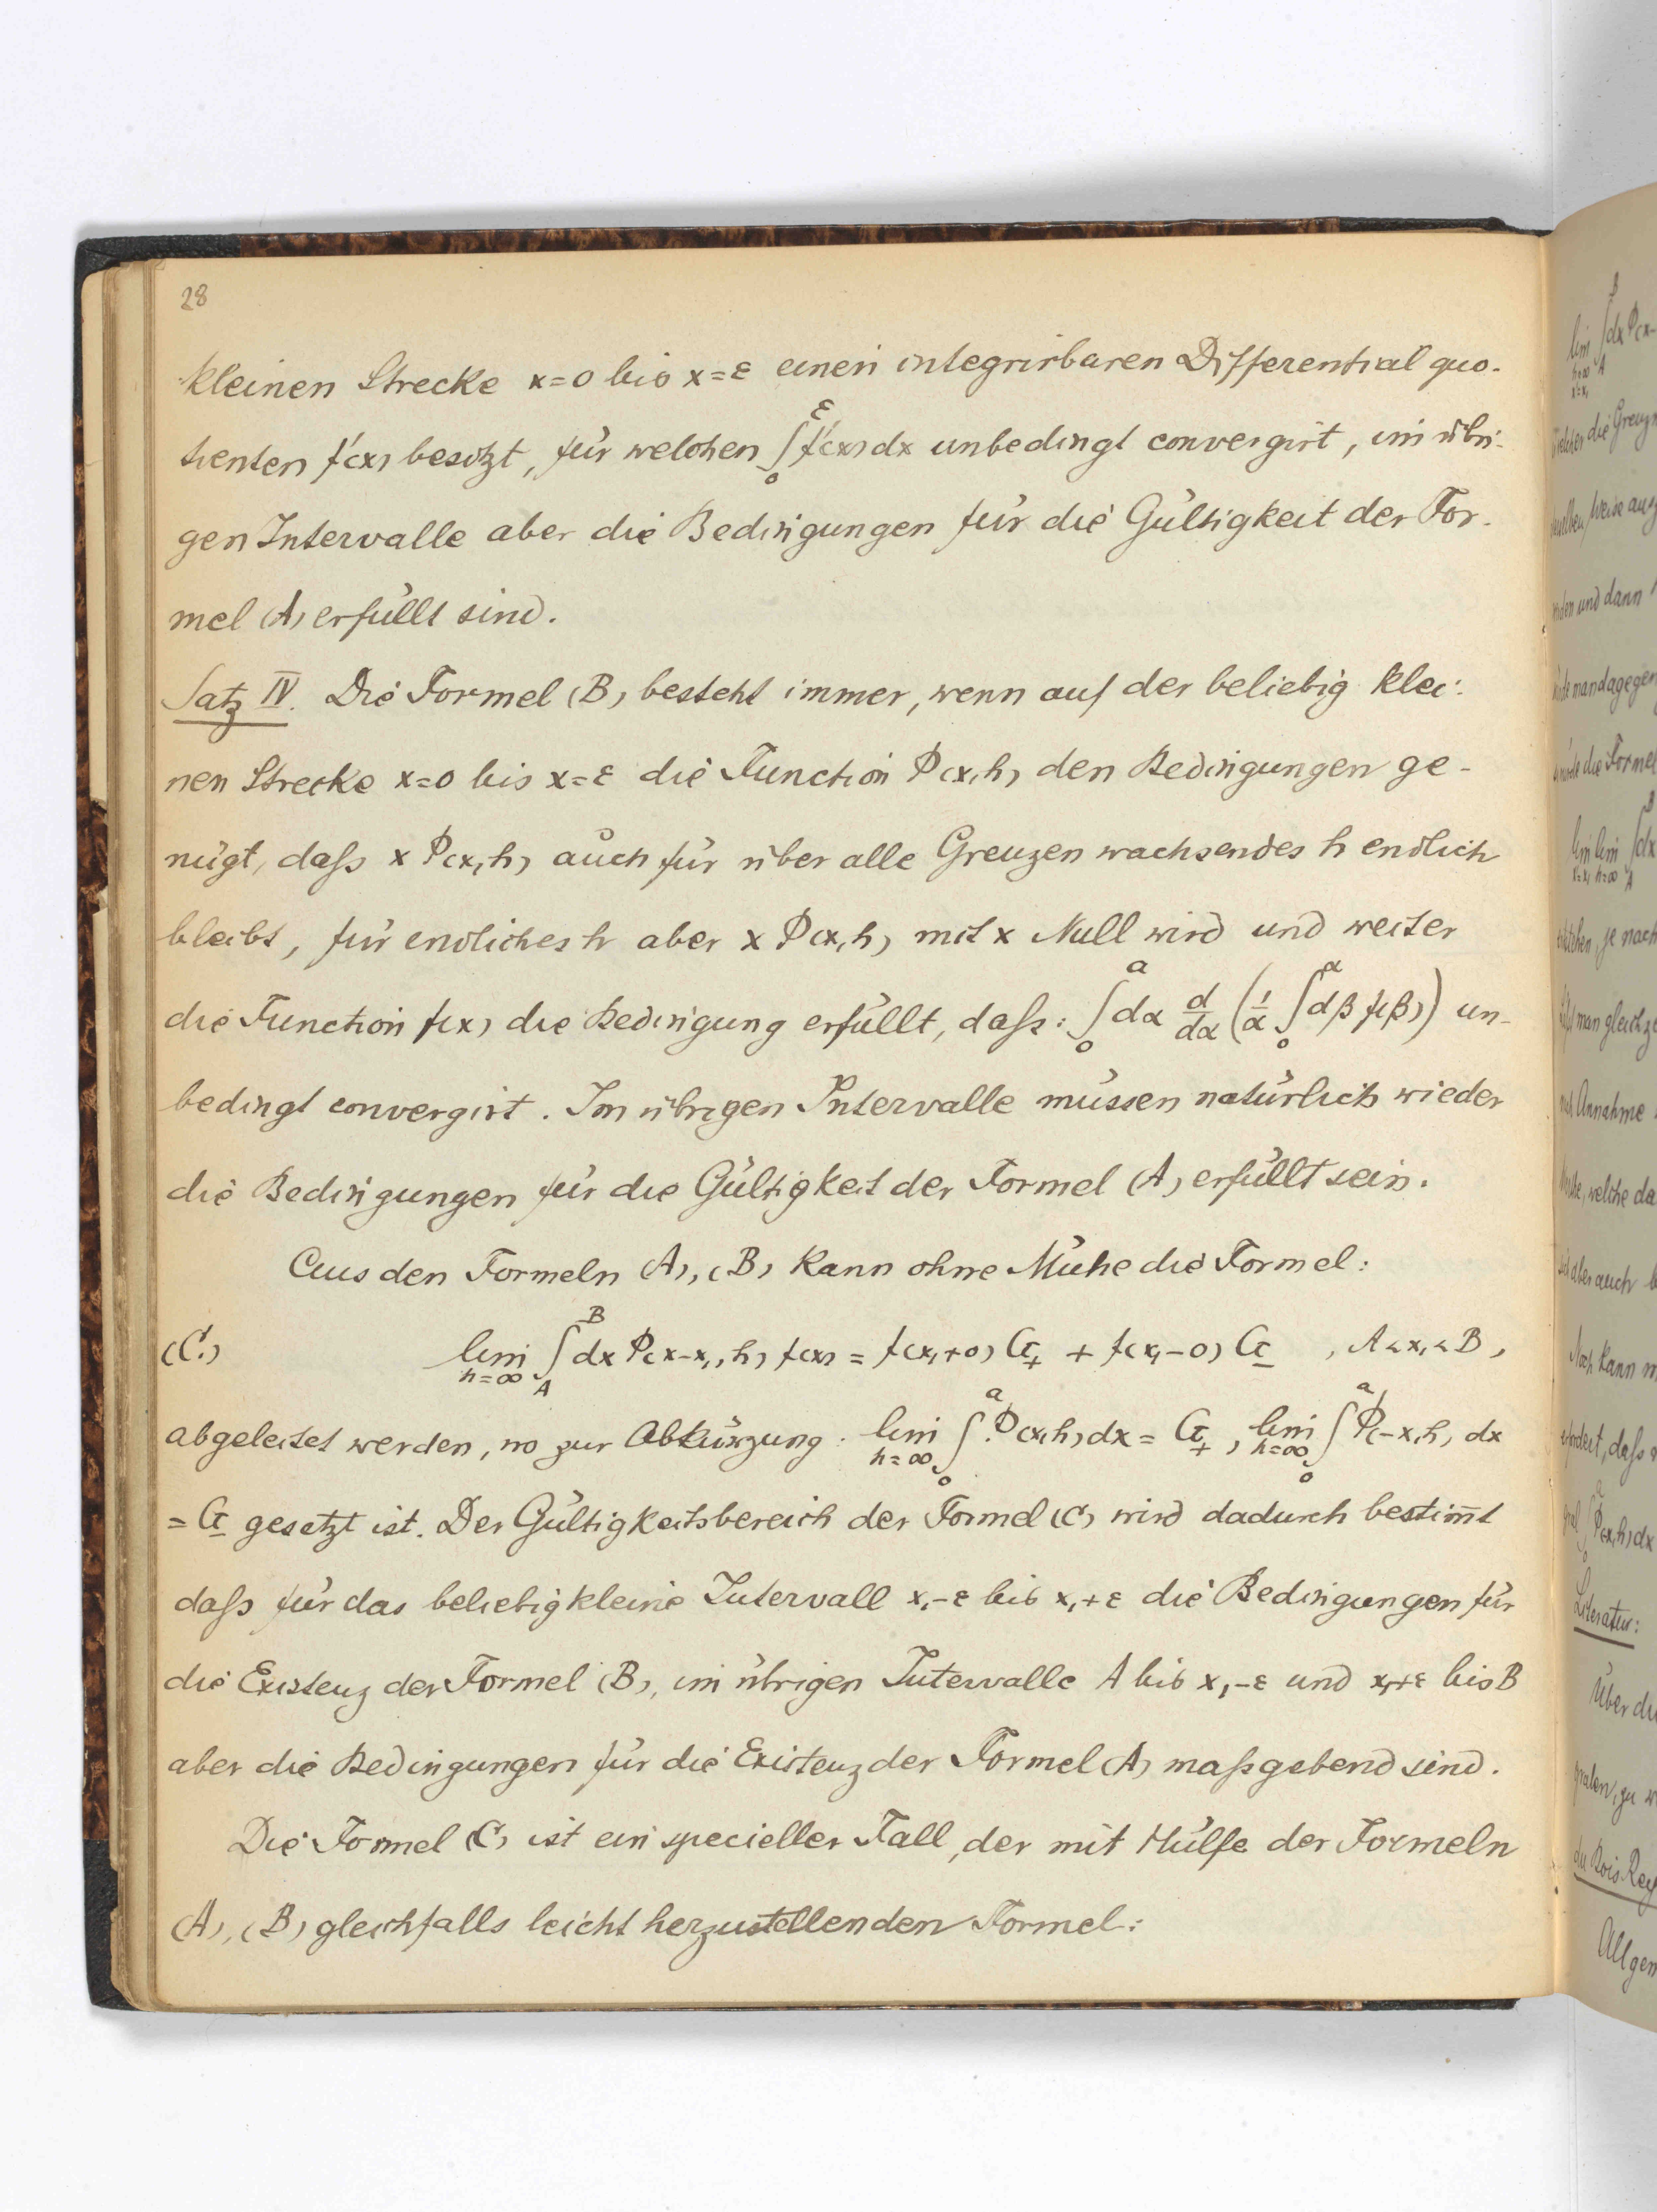 28
kleinen Strecke x=0 bis x=ε einen integrirbaren Differentialquo-
tienten f'(x) besitzt, für welchen ∫₀^ε f'(x)dx unbedingt convergirt, im übri-
gen Intervalle aber die Bedingungen für die Gültigkeit der For-
mel (A) erfüllt sind.
Satz IV. Die Formel (B) besteht immer, wenn auf der beliebig klei-
nen Strecke x=0 bis x=ε die Function Φ(x,h) den Bedingungen ge-
nügt, daß x Φ(x,h) auch für über alle Grenzen wachsendes h endlich
bleibt, für endliches h aber x Φ(x,h) mit x Null wird und weiter
die Function f(x) die Bedingung erfüllt, daß: ∫₀^a dα d/dα (1/α ∫₀^α dβ f(β)) un-
bedingt convergirt. Im übrigen Intervalle müssen natürlich wieder
die Bedingungen für die Gültigkeit der Formel (A) erfüllt sein.
Aus den Formeln (A), (B) kann ohne Mühe die Formel:
(C.) lim h=∞ ∫_A^B dx Φ(x-x₁,h) f(x) = f(x₁+0) G₊ + f(x₁-0) G₋ , A<x₁<B,
abgeleitet werden, wo zur Abkürzung: lim h=∞ ∫₀^a Φ(x,h)dx = G₊, lim h=∞ ∫₀^a Φ(-x,h) dx
= G₋ gesetzt ist. Der Gültigkeitsbereich der Formel (C) wird dadurch bestim̅t
daß für das beliebig kleine Intervall x₁-ε bis x₁+ε die Bedingungen für
die Existenz der Formel (B), im übrigen Intervalle A bis x₁-ε und x₁+ε bis B
aber die Bedingungen für die Existenz der Formel (A) maßgebend sind.
Die Formel (C) ist ein specieller Fall, der mit Hülfe der Formeln
(A), (B) gleichfalls leicht herzustellenden Formel:
lim h=∞ x=x₁ ∫_A^B dx Φ(x-
welcher die Grenz
derselben Weise aus
und dann
man dagegen
würde die Formel
lim x=x₁ lim h=∞ ∫_A^B dx
je nach
man gleichze
Annahme
welche da
aber auch b
Noch kann m
erfordert, daß
∫₀^a Φ(x,h)dx
Literatur:
Über di
gralen, zu w
du Bois Rey
Allgem